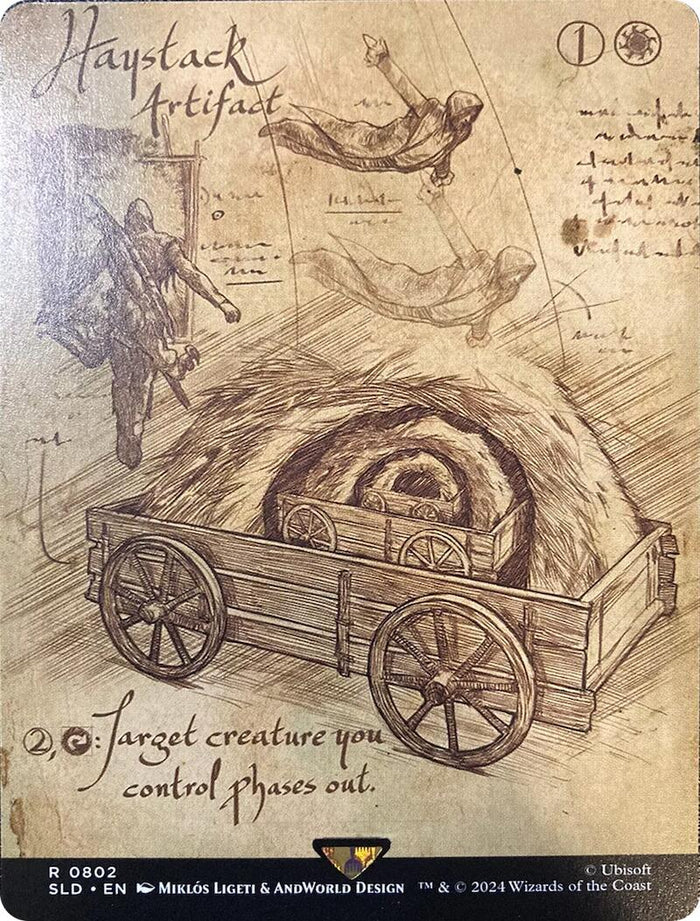 Haystack
1
Artifact
2, : Target creature you
control phases out.
R 0802
SLD • EN Miklós Ligeti & AndWorld Design
© Ubisoft
™ & © 2024 Wizards of the Coast